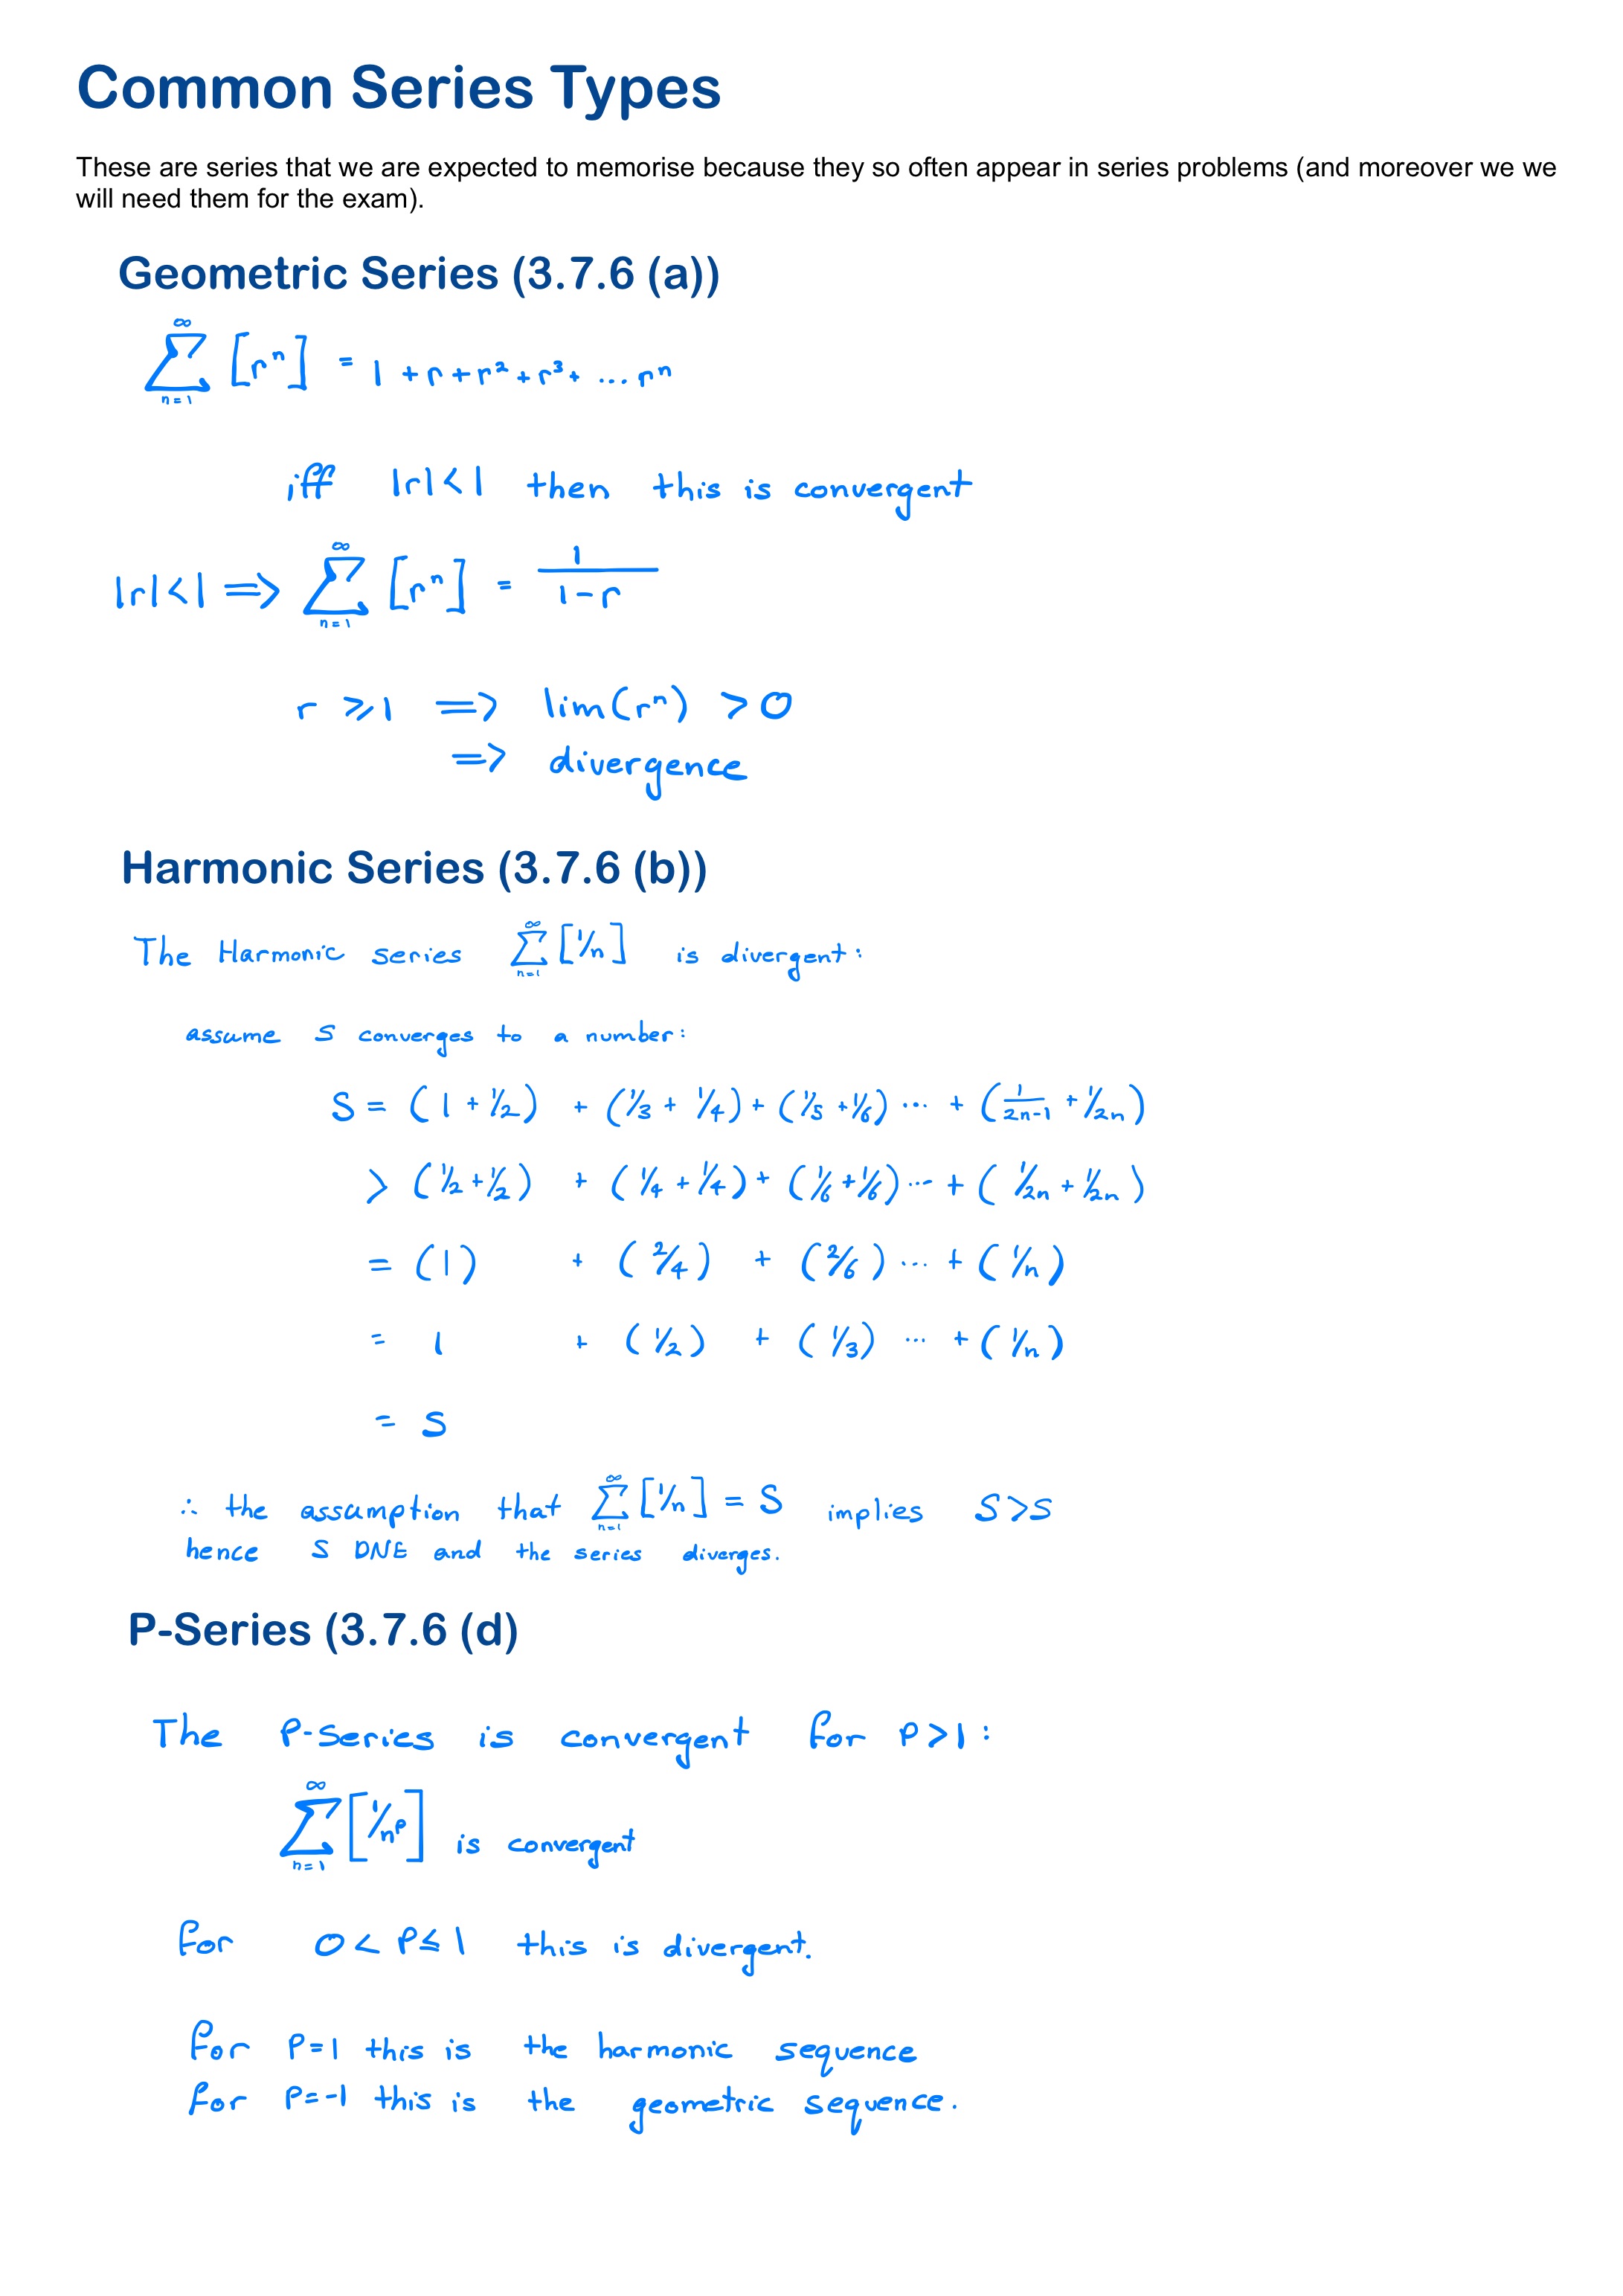 Common Series Types
These are series that we are expected to memorise because they so often appear in series problems (and moreover we we
will need them for the exam).
Geometric Series (3.7.6 (a))
∞∑n=1 [rⁿ] = 1 + r + r² + r³ + ... rⁿ
iff |r|<1 then this is convergent
|r|<1 ⟹ ∞∑n=1 [rⁿ] = 1/(1-r)
r ⩾ 1 ⟹ lim(rⁿ) > 0
⟹ divergence
Harmonic Series (3.7.6 (b))
The Harmonic series ∞∑n=1 [1/n] is divergent:
assume S converges to a number:
S = (1 + 1/2) + (1/3 + 1/4) + (1/5 + 1/6) ... + (1/2n-1 + 1/2n)
> (1/2 + 1/2) + (1/4 + 1/4) + (1/6 + 1/6) ... + (1/2n + 1/2n)
= (1) + (2/4) + (2/6) ... + (1/n)
= 1 + (1/2) + (1/3) ... + (1/n)
= S
∴ the assumption that ∞∑n=1 [1/n] = S implies S>S
hence S DNE and the series diverges.
P-Series (3.7.6 (d)
The P-Series is convergent for P>1:
∞∑n=1 [1/nᵖ] is convergent
for 0 < P ≤ 1 this is divergent.
for P=1 this is the harmonic sequence
for P=-1 this is the geometric sequence.